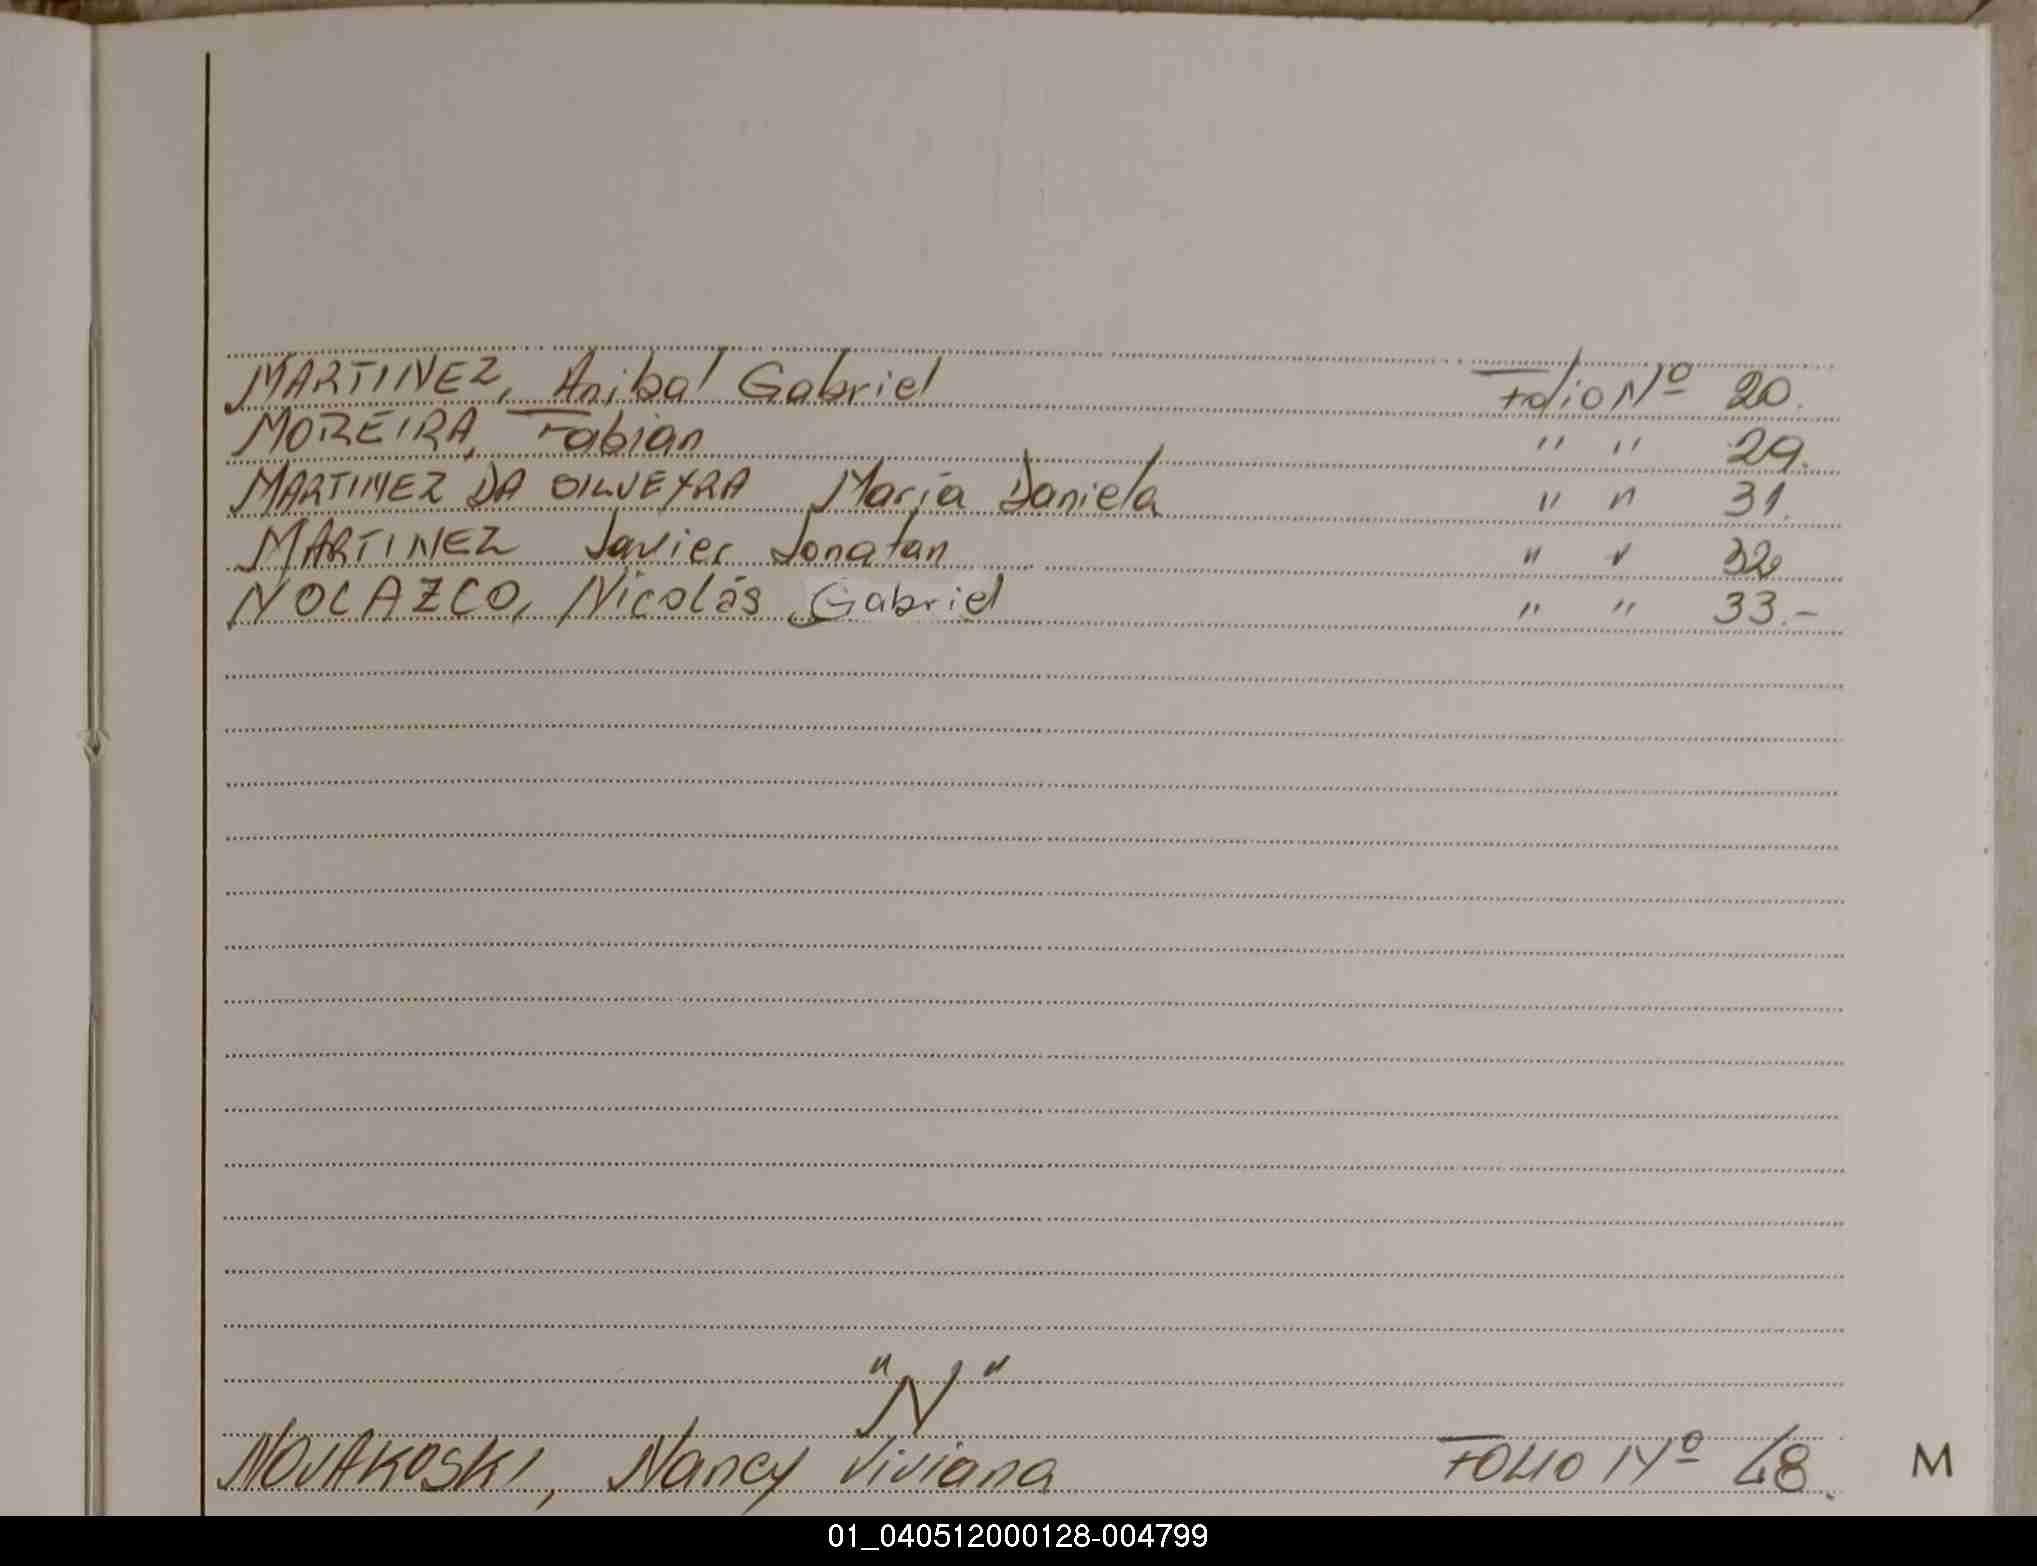 MARTINEZ, Anibal Gabriel Folio Nº 20.
MOREIRA, Fabian " " 29.
MARTINEZ DA SILVEYRA María Daniela " " 31.
MARTINEZ Javier Jonatan " " 32
NOLAZCO, Nicolás Gabriel " " 33.-
"N"
NOVAKOSKI, Nancy Viviana FOLIO Nº 48.
M
01_040512000128-004799